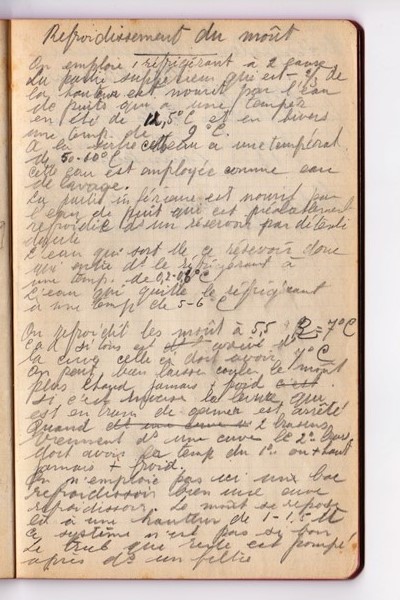 Refroidissement du moût
On emploie 1 réfrigérant à 2 eaux
La partie supérieur qui est - 2/3 de
la hauteur est nourrit par l'eau
de puits qui a une tempér
en été de 12,5°C et en hivers
une temp. de 9°C.
A la sortie cette eau a une températ.
de 50-60°C
Cette eau est employée comme eau
de lavage.
La partie inférieure est nourrit par
l'eau de puit qui est préalablement
refroidie ds un réservoir par détente
L'eau qui sort de ce réservoir donc
qui entre ds le réfrigérant à
une temp. de 0,2-0,6°C
L'eau qui quitte le réfrigérant
a une temp de 5-6°C
On refroidit les moût à 5,5 = 7°C
la cuve celle ci doit avoir 7°C
On peut bien laisser couler le moût
plus chaud jamais + froid
si c'est inverse la levure qui
est en train de germer est arrêté
Quand 2 brassins
viennent ds une cuve le 2e
doit avoir la temp du 1er ou + haut
jamais + froid.
On n'emploie pas ici une bac
refroidissoir bien une cuve
refroidissoir. Le moût se repose
là à une hauteur de 1-1,5 M
Ce système n'est pas si bon
Le trub qui reste est pompé
après ds un filtre